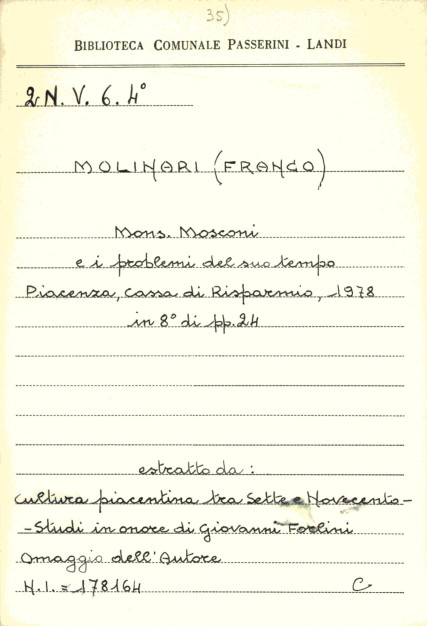 35)
BIBLIOTECA COMUNALE PASSERINI - LANDI
2 N. V. 6. 4°
MOLINARI (FRANCO)
Mons. Mosconi
e i problemi del suo tempo
Piacenza, Cassa di Risparmio, 1978
in 8° di pp. 24
estratto da :
Cultura piacentina tra Sette e Novecento -
- Studi in onore di Giovanni Forlini
Omaggio dell'Autore
N. I. = 178164 C